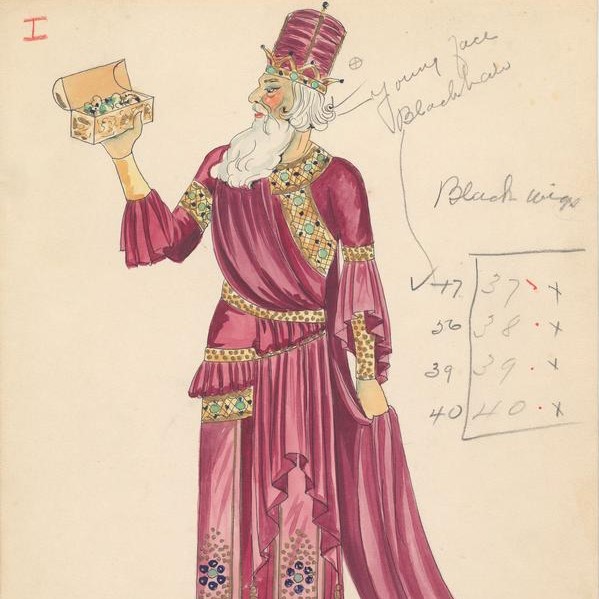 I
Young face
Black hair
Black wigs
47 37 x
36 38 x
39 39 x
40 40 x